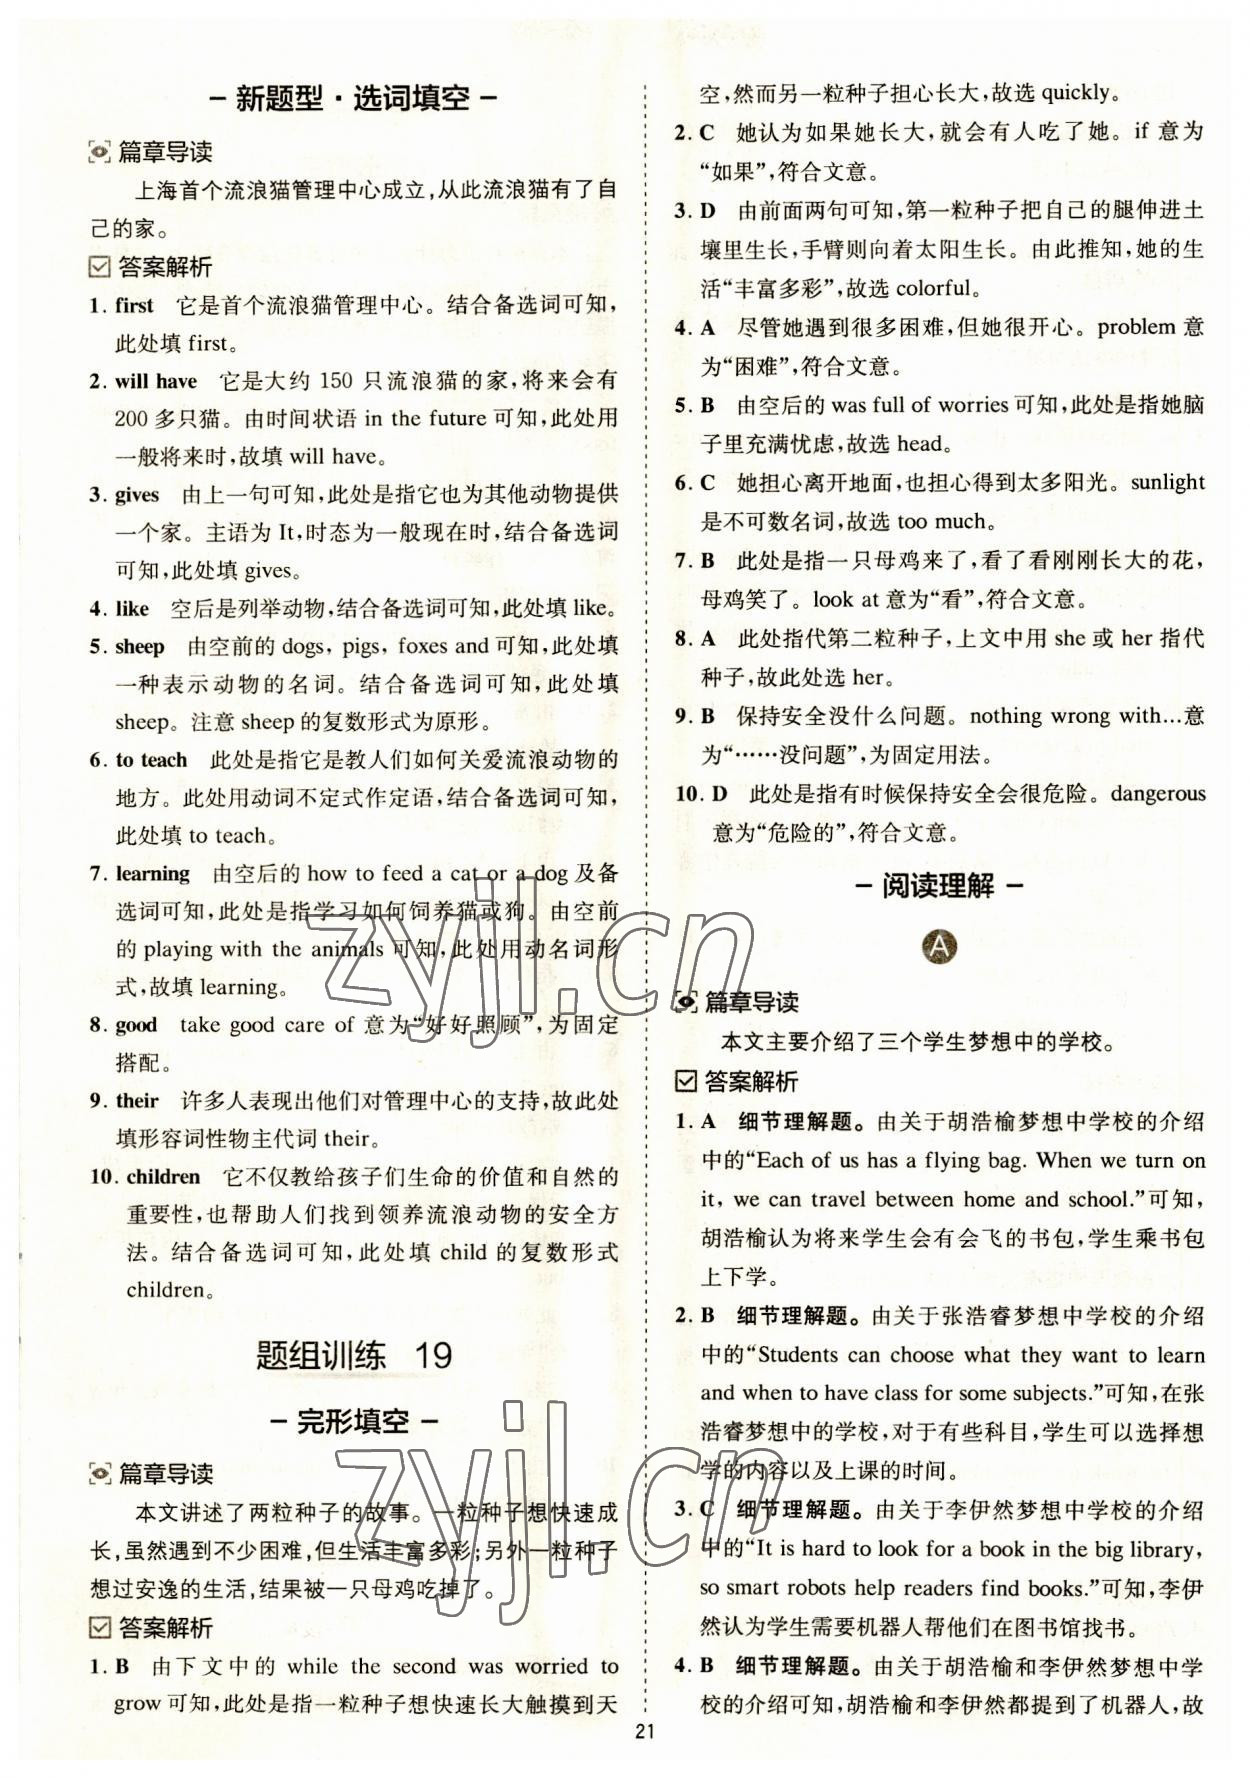 – 新题型·选词填空 –
篇章导读
上海首个流浪猫管理中心成立,从此流浪猫有了自
己的家。
答案解析
1. first 它是首个流浪猫管理中心。结合备选词可知,
此处填 first。
2. will have 它是大约 150 只流浪猫的家,将来会有
200 多只猫。由时间状语 in the future 可知,此处用
一般将来时,故填 will have。
3. gives 由上一句可知,此处是指它也为其他动物提供
一个家。主语为 It,时态为一般现在时,结合备选词
可知,此处填 gives。
4. like 空后是列举动物,结合备选词可知,此处填 like。
5. sheep 由空前的 dogs, pigs, foxes and 可知,此处填
一种表示动物的名词。结合备选词可知,此处填
sheep。注意 sheep 的复数形式为原形。
6. to teach 此处是指它是教人们如何关爱流浪动物的
地方。此处用动词不定式作定语,结合备选词可知,
此处填 to teach。
7. learning 由空后的 how to feed a cat or a dog 及备
选词可知,此处是指学习如何饲养猫或狗。由空前
的 playing with the animals 可知,此处用动名词形
式,故填 learning。
8. good take good care of 意为“好好照顾”,为固定
搭配。
9. their 许多人表现出他们对管理中心的支持,故此处
填形容词性物主代词 their。
10. children 它不仅教给孩子们生命的价值和自然的
重要性,也帮助人们找到领养流浪动物的安全方
法。结合备选词可知,此处填 child 的复数形式
children。
题组训练 19
– 完形填空 –
篇章导读
本文讲述了两粒种子的故事。一粒种子想快速成
长,虽然遇到不少困难,但生活丰富多彩;另外一粒种子
想过安逸的生活,结果被一只母鸡吃掉了。
答案解析
1. B 由下文中的 while the second was worried to
grow 可知,此处是指一粒种子想快速长大触摸到天
空,然而另一粒种子担心长大,故选 quickly。
2. C 她认为如果她长大,就会有人吃了她。if 意为
“如果”,符合文意。
3. D 由前面两句可知,第一粒种子把自己的腿伸进土
壤里生长,手臂则向着太阳生长。由此推知,她的生
活“丰富多彩”,故选 colorful。
4. A 尽管她遇到很多困难,但她很开心。problem 意
为“困难”,符合文意。
5. B 由空后的 was full of worries 可知,此处是指她脑
子里充满忧虑,故选 head。
6. C 她担心离开地面,也担心得到太多阳光。sunlight
是不可数名词,故选 too much。
7. B 此处是指一只母鸡来了,看了看刚刚长大的花,
母鸡笑了。look at 意为“看”,符合文意。
8. A 此处指代第二粒种子,上文中用 she 或 her 指代
种子,故此处选 her。
9. B 保持安全没什么问题。nothing wrong with…意
为“……没问题”,为固定用法。
10. D 此处是指有时候保持安全会很危险。dangerous
意为“危险的”,符合文意。
– 阅读理解 –
A
篇章导读
本文主要介绍了三个学生梦想中的学校。
答案解析
1. A 细节理解题。由关于胡浩榆梦想中学校的介绍
中的“Each of us has a flying bag. When we turn on
it, we can travel between home and school.”可知,
胡浩榆认为将来学生会有会飞的书包,学生乘书包
上下学。
2. B 细节理解题。由关于张浩睿梦想中学校的介绍
中的“Students can choose what they want to learn
and when to have class for some subjects.”可知,在张
浩睿梦想中的学校,对于有些科目,学生可以选择想
学的内容以及上课的时间。
3. C 细节理解题。由关于李伊然梦想中学校的介绍
中的“It is hard to look for a book in the big library,
so smart robots help readers find books.”可知,李伊
然认为学生需要机器人帮他们在图书馆找书。
4. B 细节理解题。由关于胡浩榆和李伊然梦想中学
校的介绍可知,胡浩榆和李伊然都提到了机器人,故
21
zyjl.cn
zyjl.cn